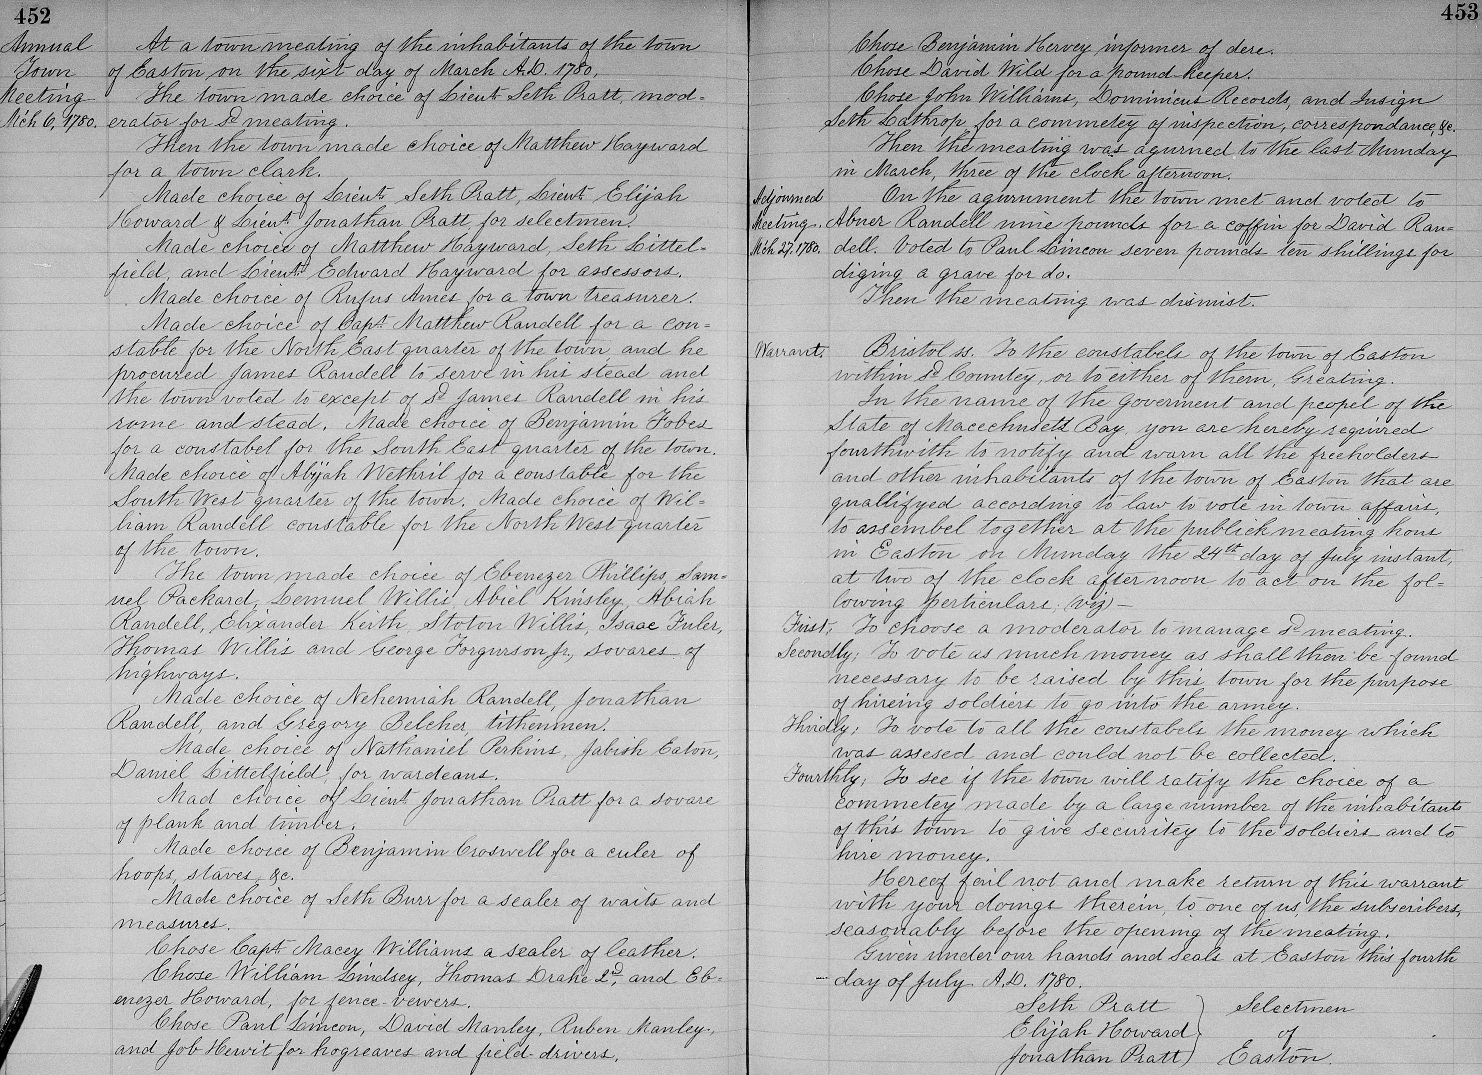 452
Annual
Town
Meeting
M'ch 6, 1780.
At a town meating of the inhabitants of the town
of Easton on the sixt day of March A.D. 1780,
The town made choice of Lieut Seth Pratt, mod=
erator for sd meating.
Then the town made choice of Matthew Hayward
for a town clark.
Made choice of Lieut Seth Pratt, Lieut Elijah
Howard & Lieut Jonathan Pratt, for selectmen.
Made choice of Matthew Hayward, Seth Littel=
field, and Lieut Edward Hayward for assessors.
Made choice of Rufus Ames for a town treasurer.
Made choice of Capt Matthew Randell for a con=
stable for the North East quarter of the town, and he
procured James Randell to serve in his stead and
the town voted to except of sd James Randell in his
rome and stead. Made choice of Benjamin Fobes
for a constabel for the South East quarter of the town.
Made choice of Abijah Wethril for a constable for the
South West quarter of the town. Made choice of Wil=
liam Randell constable for the North West quarter
of the town.
The town made choice of Ebenezer Phillips, Sam=
uel Packard, Lemuel Willis, Abiel Kinsley, Abiah
Randell, Elixander Keith, Stoton Willis, Isaac Fuler,
Thomas Willis and George Forgurson Jr., sovares of
highways.
Made choice of Nehemiah Randell, Jonathan
Randell, and Gregory Belcher, tithenmen.
Made choice of Nathaniel Perkins, Jabish Eaton,
Daniel Littelfield, for wardeans.
Mad choice of Lieut Jonathan Pratt for a sovare
of plank and timber.
Made choice of Benjamin Croswell for a culer of
hoops, staves, &c.
Made choice of Seth Burr for a sealer of waits and
measures.
Chose Capt Macey Williams a sealer of leather.
Chose William Lindsey, Thomas Drake 2d, and Eb=
enezer Howard, for fence-vewers.
Chose Paul Lincon, David Manley, Ruben Manley,
and Job Hewit for hogreaves and field-drivers.
453
Chose Benjamin Hervey informer of dere.
Chose David Wild for a pound-keeper.
Chose John Williams, Dominicus Records, and Insign
Seth Lathrop for a commetey of inspection, correspondance, &c.
Then the meating was agurned to the last Munday
in March, three of the clock afternoon.
Adjourned
Meeting.
M'ch 27, 1780.
On the agurnment the town met and voted to
Abner Randell nine pounds for a coffin for David Ran=
dell. Voted to Paul Lincon seven pounds ten shillings for
diging a grave for do.
Then the meating was dismist.
Warrant.
Bristol ss. To the constabels of the town of Easton
within sd Countey, or to either of them, Greating.
In the name of the goverment and peopel of the
State of Macechusett Bay, you are hereby required
fourthwith to notify and warn all the freeholders
and other inhabitants of the town of Easton that are
quallifyed according to law to vote in town affairs,
to assembel together at the publick meating hous
in Easton on Munday the 24th day of July instant,
at two of the clock after noon to act on the fol=
lowing perticulars, (viz)—
First, To choose a moderator to manage sd meating.
Secondly; To vote as much money as shall then be found
necessary to be raised by this town for the purpose
of hireing soldiers to go into the armey.
Thirdly; To vote to all the constabels the money which
was assesed and could not be collected.
Fourthly; To see if the town will ratify the choice of a
commetey made by a large number of the inhabitants
of this town to give securitey to the soldiers and to
hire money.
Hereof fail not and make return of this warrant
with your doings therein, to one of us, the subscribers,
seasonably before the opening of the meating.
Given under our hands and seals at Easton this fourth
day of July A.D. 1780.
Seth Pratt
Elijah Howard
Jonathan Pratt
Selectmen
of
Easton.